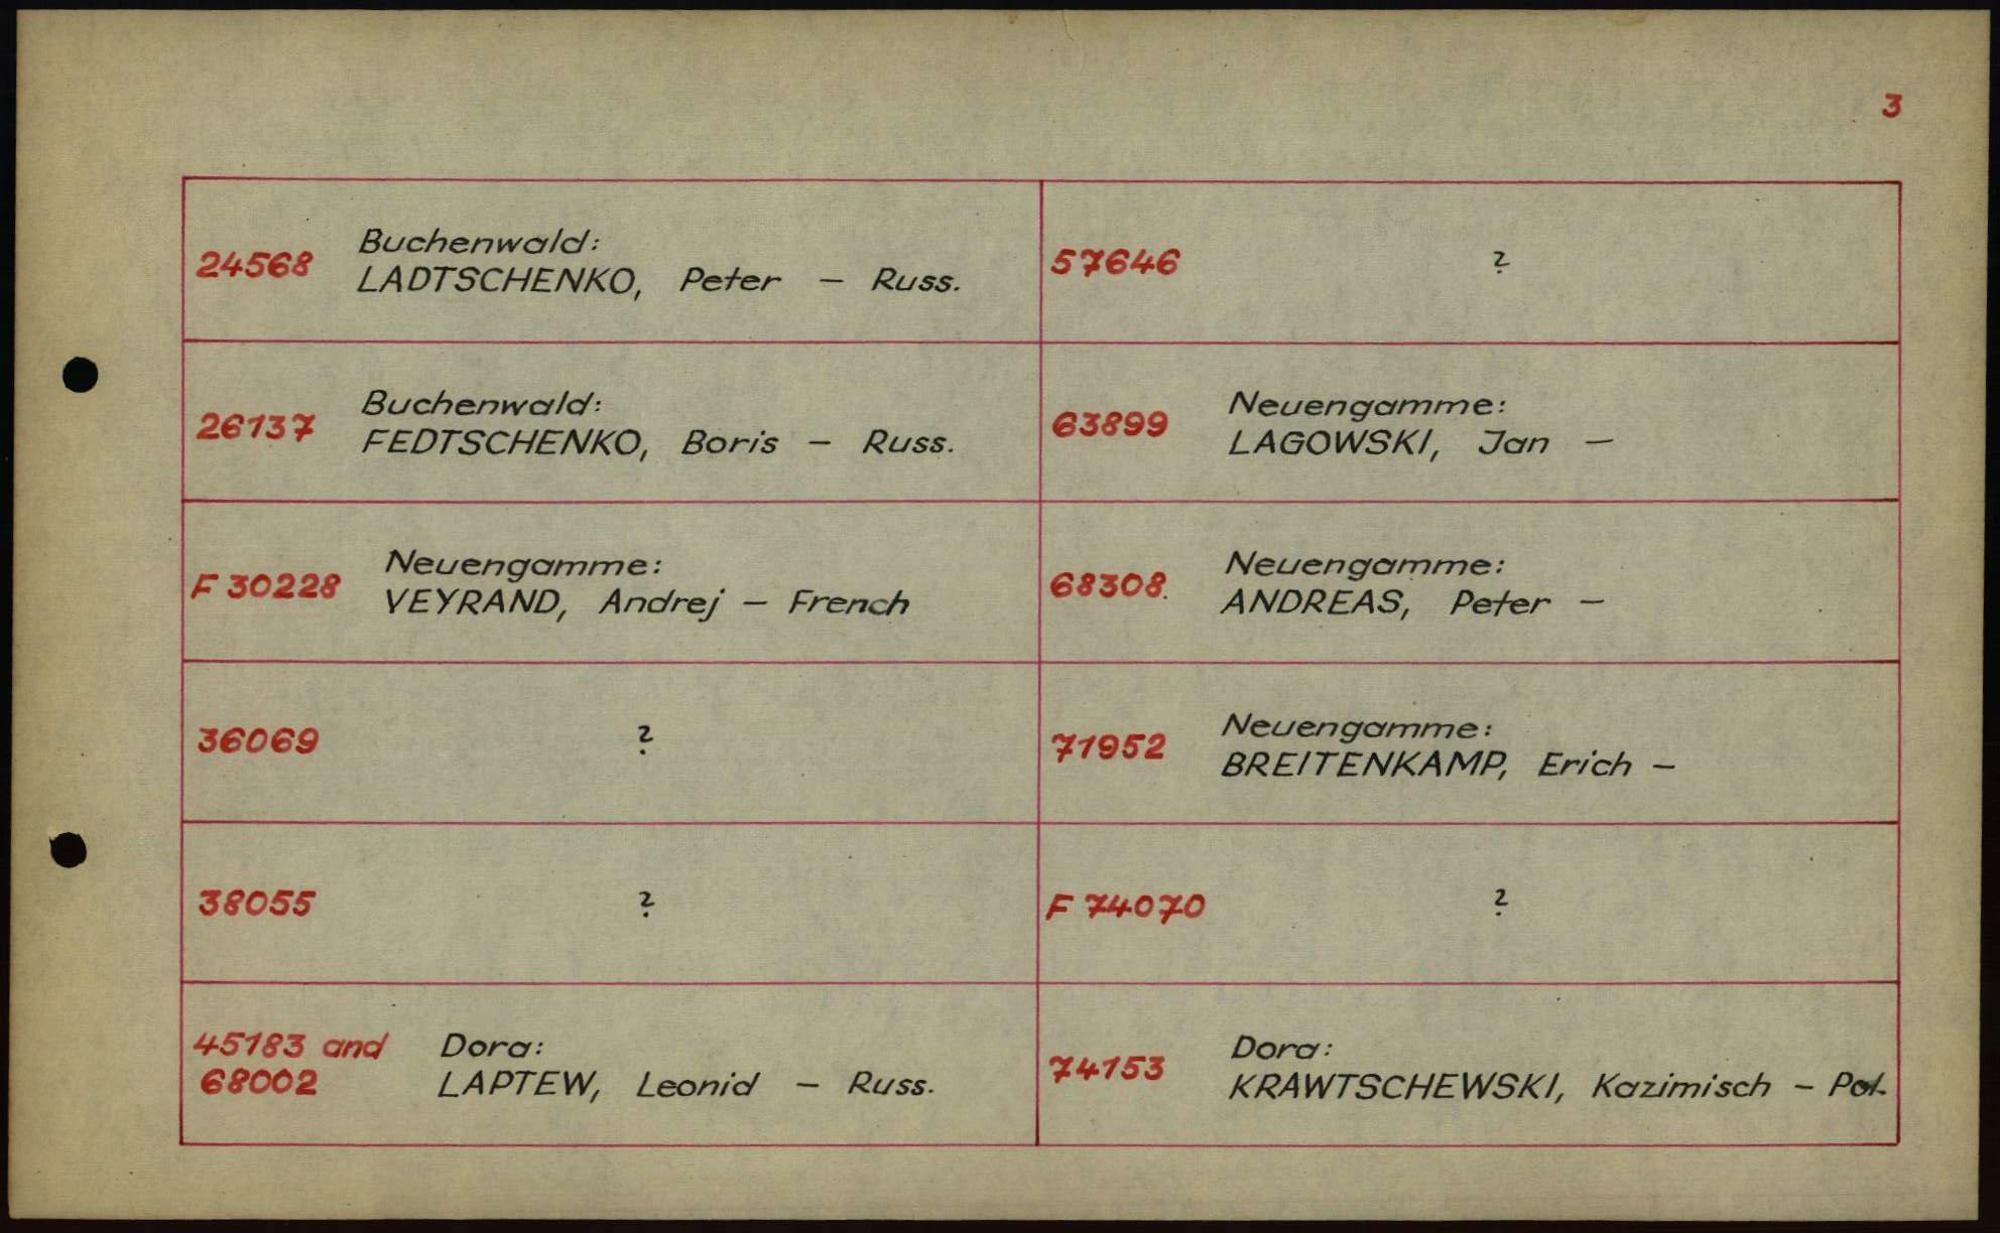 3
24568 Buchenwald:
LADTSCHENKO, Peter – Russ.
57646 ?
26137 Buchenwald:
FEDTSCHENKO, Boris – Russ.
63899 Neuengamme:
LAGOWSKI, Jan –
F 30228 Neuengamme:
VEYRAND, Andrej – French
68308. Neuengamme:
ANDREAS, Peter –
36069 ?
71952 Neuengamme:
BREITENKAMP, Erich –
38055 ?
F 74070 ?
45183 and Dora:
68002 LAPTEW, Leonid – Russ.
74153 Dora:
KRAWTSCHEWSKI, Kazimisch – Pol.